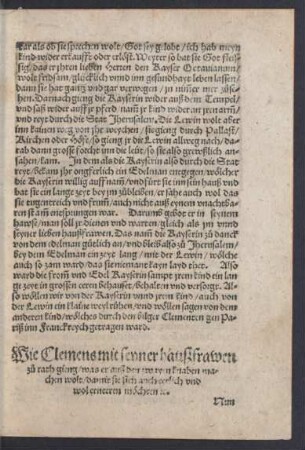 war als ob sie sprechen wolt / Got sey gelobt / ich hab meyn
kind wider erkaufft oder erlöst. Weyter so bat sie Got fleis-
sig / das er ihren lieben Herren den Kayser Octauianum /
wolt fristsam / glücklich vnnd inn gesundhayt leben lassen /
dann sie het gantz vnd gar verwogen / jn nimmer mer zůse-
hen. Darnach gieng die Kayserin wider auß dem Tempel /
vnd saß wider auff jr pferd nam jr kind wider an jren arm /
vnd reyt durch die Stat Jherusalem. Die Lewin wolt aber
inn kainen weg von jhr weychen / sie gieng durch Pallast /
Kirchen oder Höff / so gieng jr die Lewin allweg nach / da-
rab dann grosse forcht inn die leüt / so sie also grewlich an-
sahen / kam. In dem als die Kayserin also durch die Stat
reyt / bekam jhr ongferlich ein Edelman entgegen / wölcher
die Kayserin willig auffnam / vnd füret sie inn sein hauß vnd
bat sie ein lange zeyt bey jm zebleyben / er sahe auch wol das
sie tugentreich vnd frum / auch nicht auß eynem vnachtba-
ren stam entsprungen war. Darumb gebot er in seynem
hawse / man soll jr dienen vnd warten gleich als jm vnnd
seyner lieben haußfrawen. Das nam die Kayserin zů danck
von dem edelman gütlich an / vnd bleib also zů Jherusalem /
bey dem Edelman ein zeyt lang / mit der Lewin / wölche
auch so zam ward / das sie niemant kayn layd thet. Also
ward die frum vnd Edel Kayserin sampt jrem kind ein lan-
ge zeyt in grossen eeren behauset / behalten vnd versorgt. Al-
so wöllen wir von der Kayserin vnnd jrem kind / auch von
der Lewin ein klaine weyl rühen / vnd wöllen sagen von dem
anderen kind / wölches durch den bilger Clementen gen Pa-
riß inn Franckreych getragen ward.
Wie Clemens mit seyner haußfrawen
zů rath gieng / was er auß den zwayen knaben ma-
chen wolt / damit sie sich auch eerlich vnd
wol erneren möchten ꝛc.
Nun